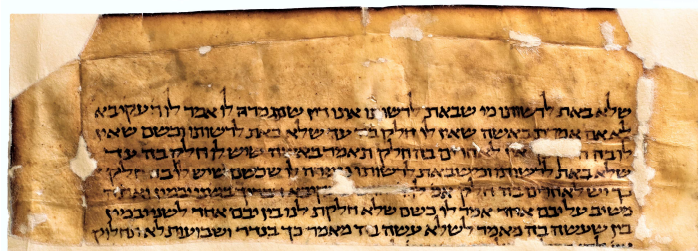 שלא באת לרשותו מי שבאת לרשותו אינו דין שתגמר לו אמר לו ר עקיבא
לא אם אמרת באשה שאין לו חלק בה עד שלא באת לרשותו וכשם שאין
לו בה אין לאחרים בה חלק תאמר באשה שיש לו חלק בה עד
שלא באת לרשותו ומשבאת לרשותו לו שכשם שיש לו בה חלק
כך יש לאחרים בה חלק אמ לו עקיבא דבריך בשני יבמין ומה
משיב על יבם אחד אמר לו כשם שלא חלקת לנו בין יבם אחד לשני יבמין
בין שעשה בה מאמר לשלא עשה בה מאמר כך בנדרי ושבועות לא תחלוק